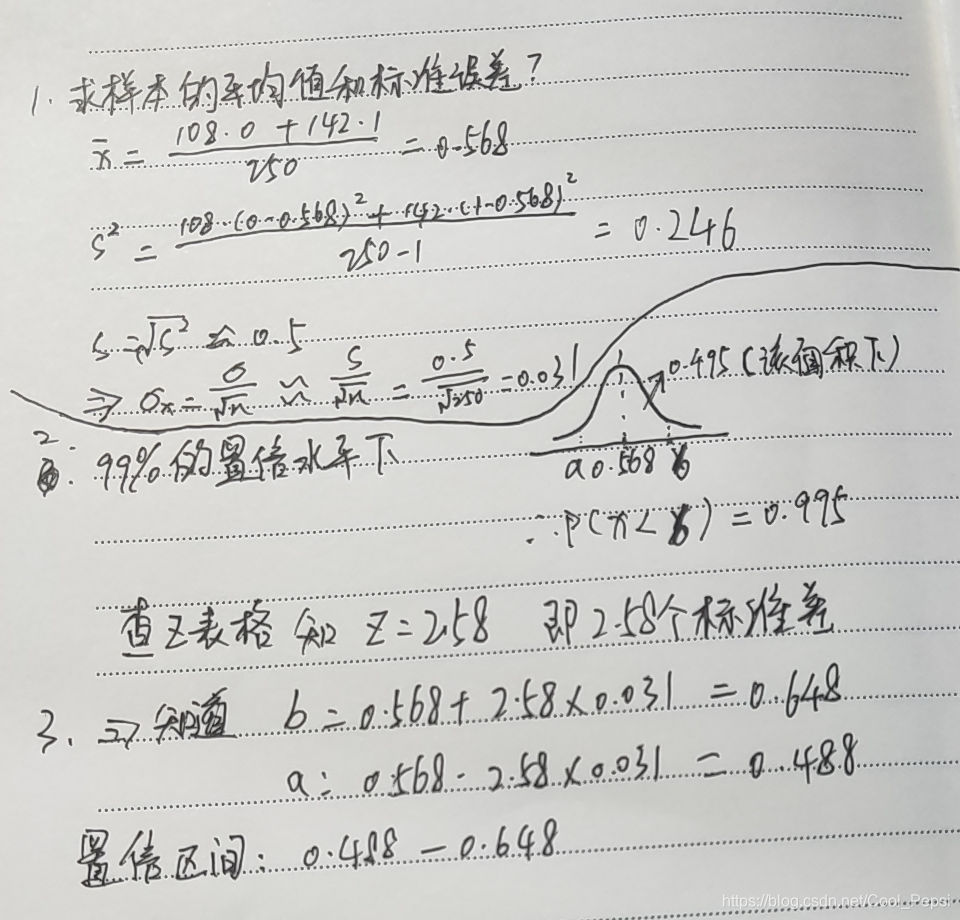 1. 求样本的平均值和标准误差?
x̄ = (108·0 + 142·1) / 250 = 0.568
S² = (108·(0-0.568)² + 142·(1-0.568)²) / (250-1) = 0.246
S = √S² ≈ 0.5
⇒ σx = σ/√n ≈ S/√n = 0.5/√250 = 0.031
0.495 (该面积下)
a 0.568 b
2. 99%的置信水平下
∴ P(x < b) = 0.995
查Z表格 知 Z = 2.58 即 2.58个标准差
3. ⇒ 知道 b = 0.568 + 2.58×0.031 = 0.648
a = 0.568 - 2.58×0.031 = 0.488
置信区间: 0.488 - 0.648
https://blog.csdn.net/Cool_Pepsi